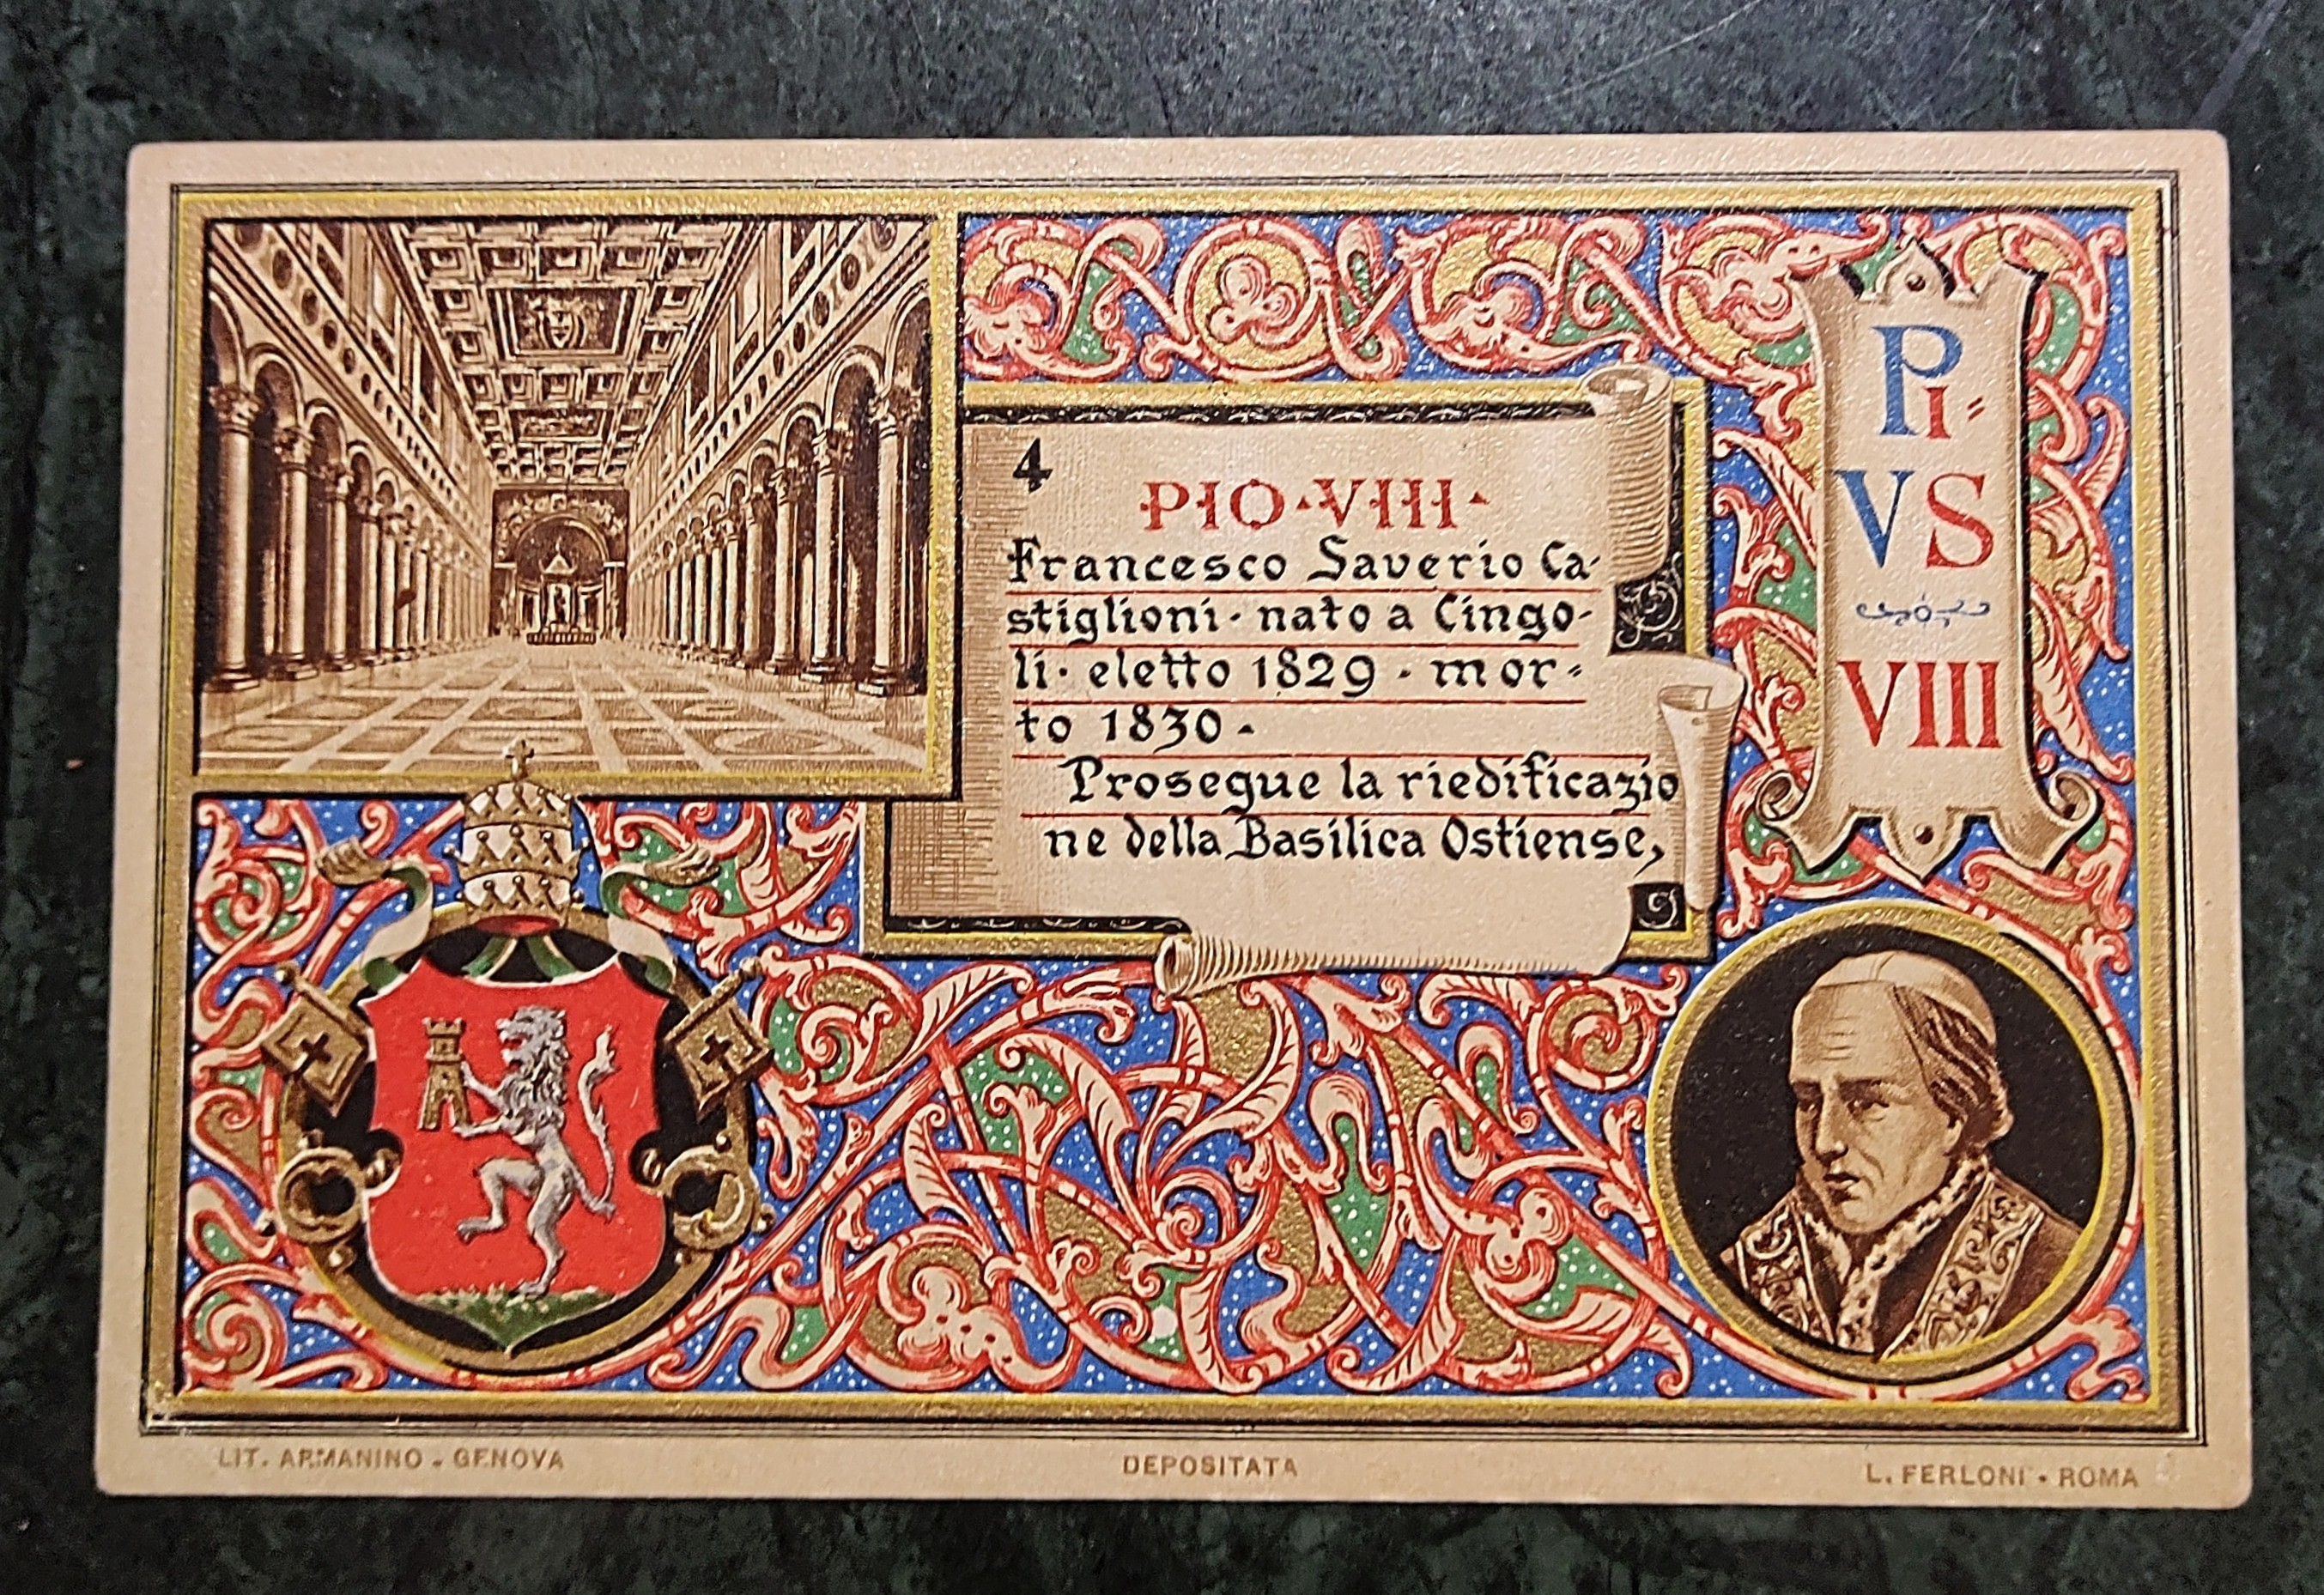 4
PIO·VIII·
Francesco Saverio Ca-
stiglioni · nato a Cingo-
li · eletto 1829 · mor-
to 1830 ·
Prosegue la riedificazio
ne della Basilica Ostiense,
Pi-
VS
VIII
LIT. ARMANINO - GENOVA
DEPOSITATA
L. FERLONI · ROMA